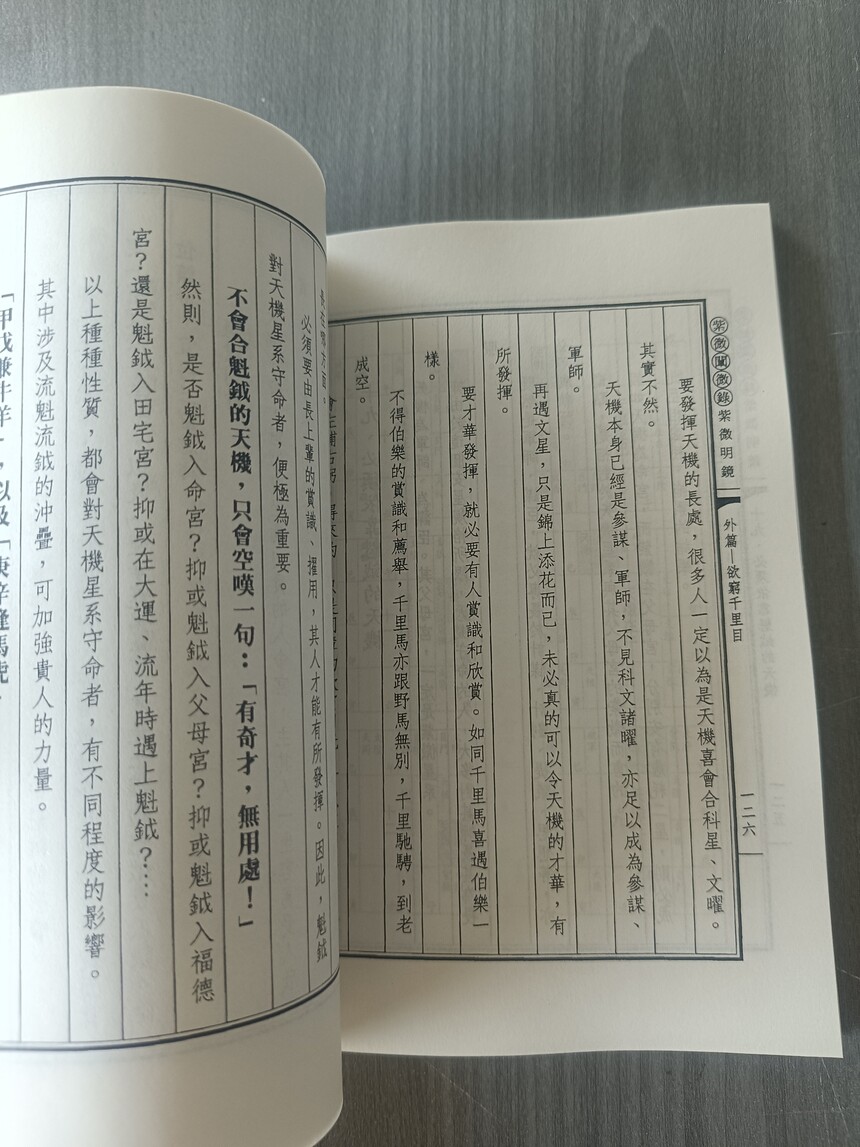 紫微闡微錄 紫微明鏡
外篇—欲窮千里目
一二六
要發揮天機的長處，很多人一定以為是天機喜會合科星、文曜。
其實不然。
天機本身已經是參謀、軍師，不見科文諸曜，亦足以成為參謀、
軍師。
再遇文星，只是錦上添花而已，未必真的可以令天機的才華，有
所發揮。
要才華發揮，就必要有人賞識和欣賞。如同千里馬喜遇伯樂一
樣。
不得伯樂的賞識和薦舉，千里馬亦跟野馬無別，千里馳騁，到老
成空。
必須要由長上輩的賞識、擢用，其人才能有所發揮。因此，魁鉞
對天機星系守命者，便極為重要。
不會合魁鉞的天機，只會空嘆一句：「有奇才，無用處！」
然則，是否魁鉞入命宮？抑或魁鉞入父母宮？抑或魁鉞入福德
宮？還是魁鉞入田宅宮？抑或在大運、流年時遇上魁鉞？…
以上種種性質，都會對天機星系守命者，有不同程度的影響。
其中涉及流魁流鉞的沖疊，可加強貴人的力量。